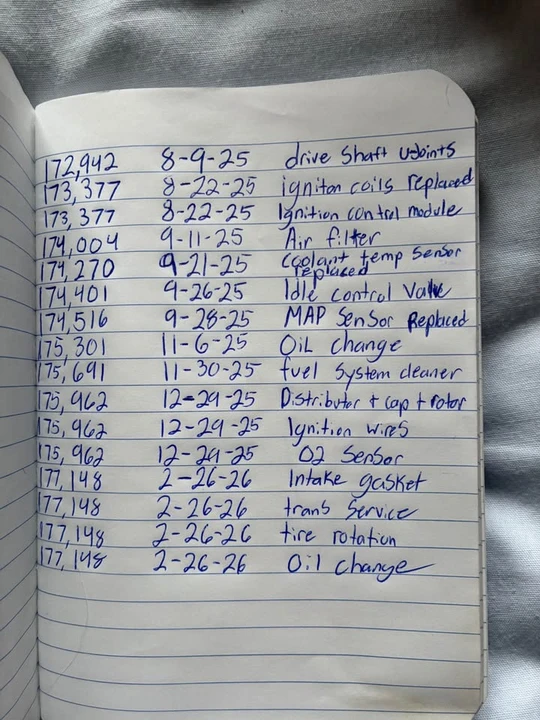 172,942 8-9-25 drive shaft u-joints
173,377 8-22-25 igniton coils replaced
173,377 8-22-25 Ignition control module
174,004 9-11-25 Air filter
174,270 9-21-25 coolant temp sensor
replaced
174,401 9-26-25 Idle control valve
174,516 9-28-25 MAP Sensor Replaced
175,301 11-6-25 OiL change
175,691 11-30-25 fuel system cleaner
175,962 12-29-25 Distributor + cap + rotor
175,962 12-29-25 Ignition wires
175,962 12-29-25 O2 Sensor
177,148 2-26-26 Intake gasket
177,148 2-26-26 trans Service
177,148 2-26-26 tire rotation
177,148 2-26-26 Oil change